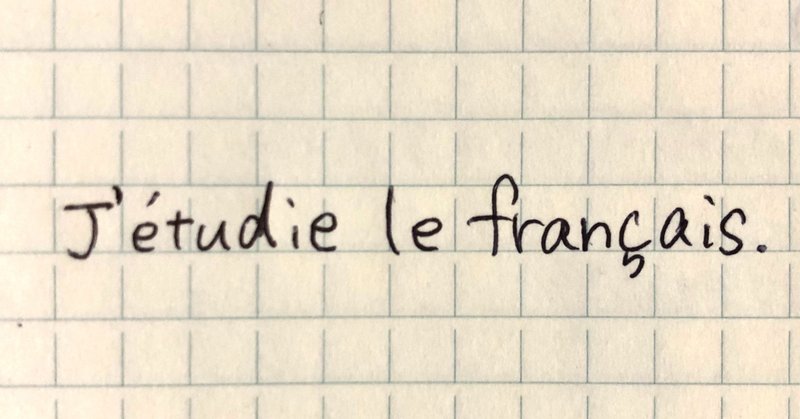 J'étudie le français.